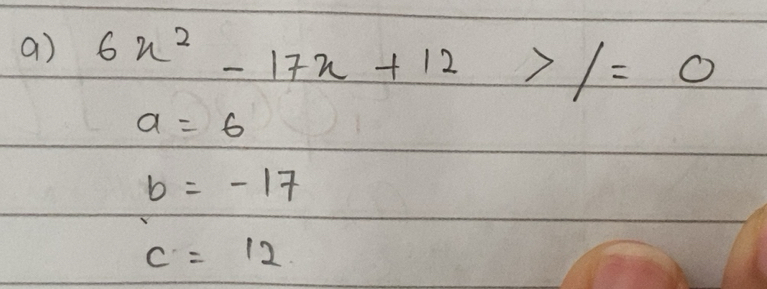 a) 6x² - 17x + 12 > / = 0
a = 6
b = -17
c = 12.